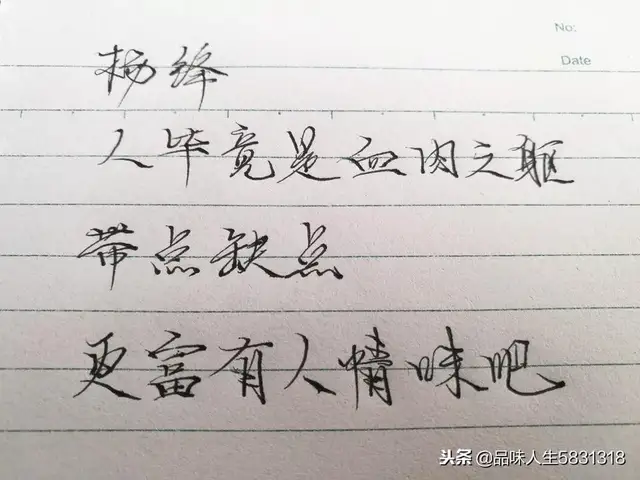 No:
Date
杨绛
人毕竟是血肉之躯
带点缺点
更富有人情味吧
头条 @品味人生5831318